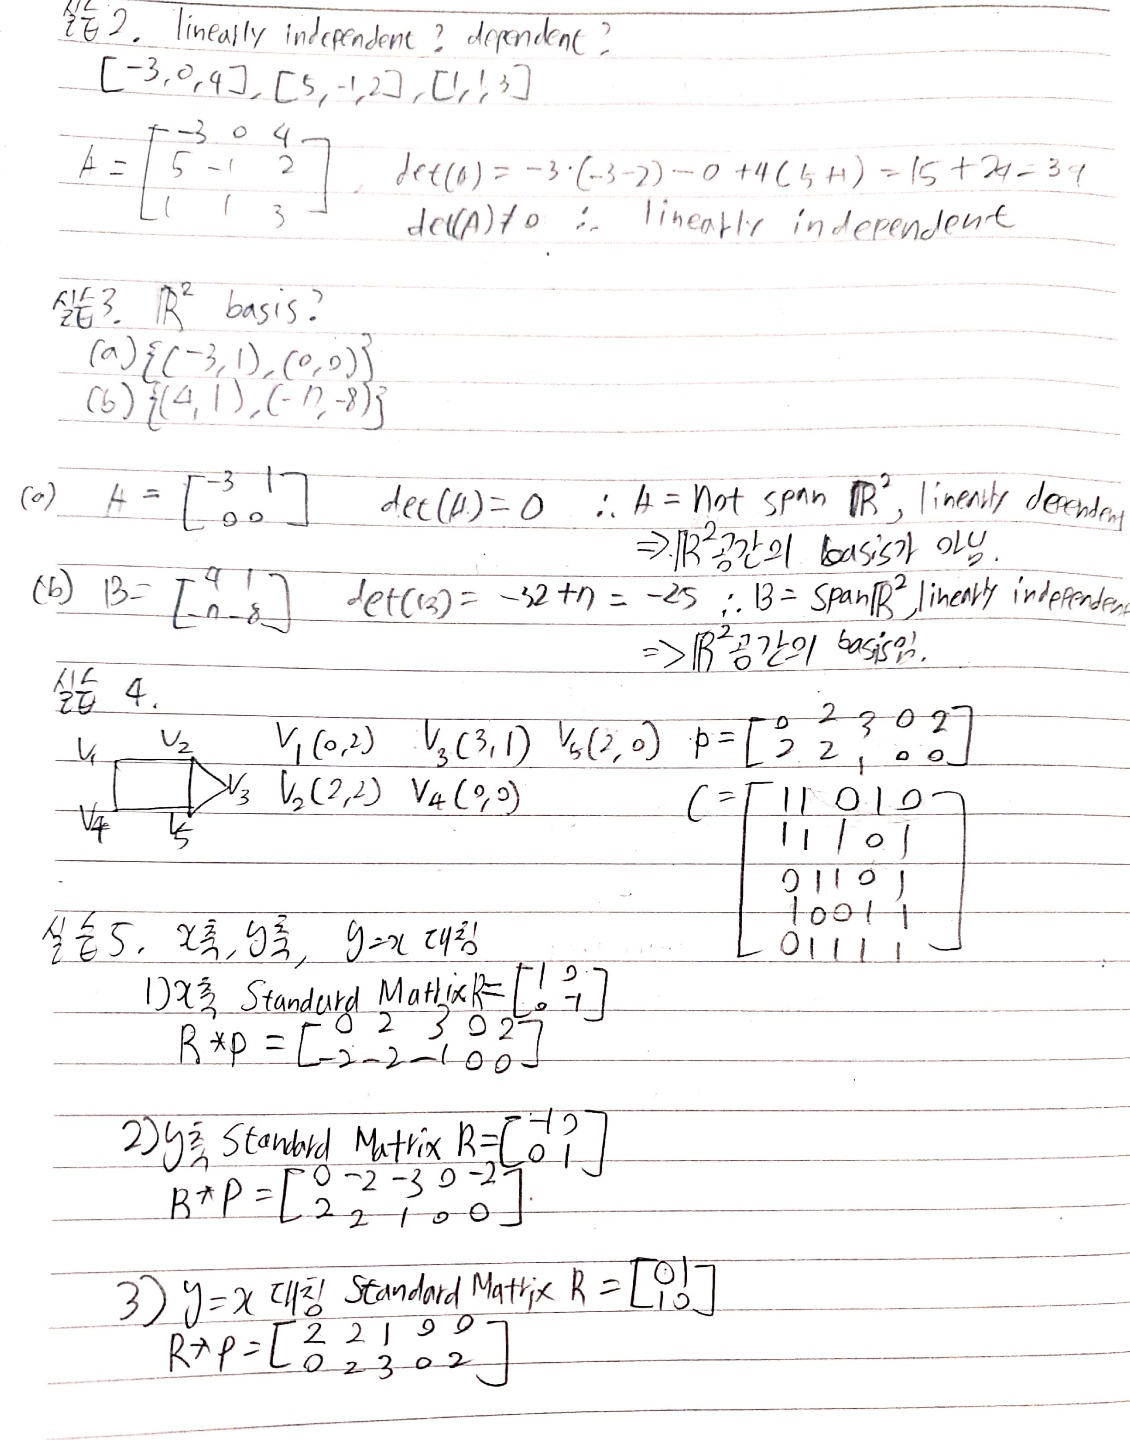 실습2. linearly independent? dependent?
[-3,0,4], [5,-1,2], [1,1,3]
A = [-3 0 4
5 -1 2
1 1 3], det(A) = -3·(-3-2)-0+4(5+1) = 15+24=39
det(A)≠0 ∴ linearly independent
실습3. ℝ² basis?
(a) {(-3,1),(0,0)}
(b) {(4,1),(-7,-8)}
(a) A = [-3 1
0 0] det(A)=0 ∴ A = Not span ℝ², linearly dependent
⇒ ℝ²공간의 basis가 아님.
(b) B= [4 1
-7 -8] det(B) = -32+7 = -25 ∴ B = span ℝ², linearly independent
=> ℝ²공간의 basis임.
실습 4.
V1 V2 V3 V4 V5
V₁(0,2) V₃(3,1) V₅(2,0) P=[0 2 3 0 2
2 2 1 0 0]
V₂(2,2) V₄(0,0)
C=[1 1 0 1 0
1 1 1 0 1
0 1 1 0 1
1 0 0 1 1
0 1 1 1 1]
실습5. x축, y축, y=x 대칭
1) x축 Standard Matrix R=[1 0
0 -1]
R*P = [0 2 3 0 2
-2 -2 -1 0 0]
2) y축 Standard Matrix R=[-1 0
0 1]
R*P = [0 -2 -3 0 -2
2 2 1 0 0].
3) y=x 대칭 Standard Matrix R = [0 1
1 0]
R*P=[2 2 1 0 0
0 2 3 0 2]